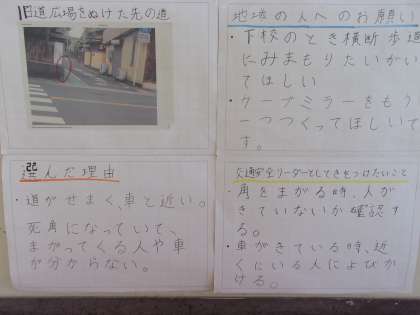 旧道広場をぬけた先の道
地域の人へのお願い
・下校のとき横断歩道
にみまもりたいがいて
ほしい
・カーブミラーをもう
一つつくってほしいで
す。
選んだ理由
・道がせまく、車と近い。
死角になっていて、
まがってくる人や車
が分からない。
交通安全リーダーとしてきをつけたいこと
・角をまがる時、人が
きていないか確認す
る。
・車がきている時、近
くにいる人によびか
ける。